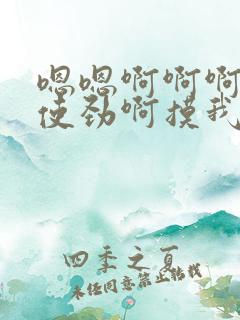 嗯嗯啊啊啊
使劲啊摸我
四季之夏
未经同意禁止转载